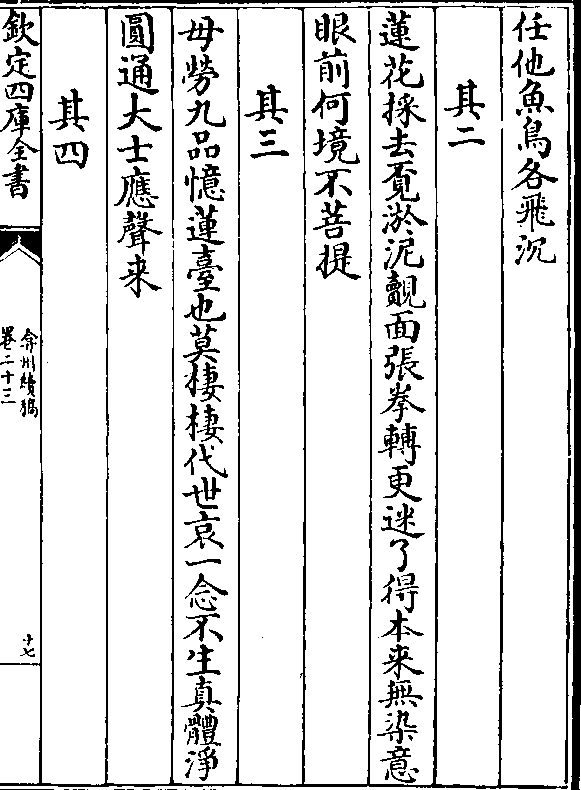 任他魚鳥各飛沉
其二
蓮花採去覔淤泥覿面張拳轉更迷了得本来無染意
眼前何境不菩提
其三
毋勞九品憶蓮臺也莫棲棲代世哀一念不生真體淨
圓通大士應聲来
其四
欽定四庫全書
弇州續稿
卷二十三
十七